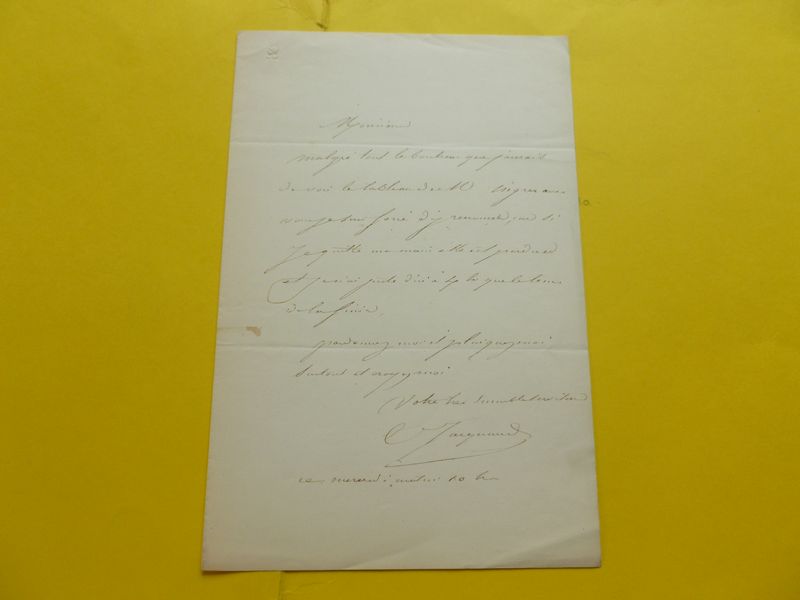 Monsieur
malgré tout le bonheur que j'aurais
de voir le tableau de M Ingres avec
vous je suis forcé d'y renoncer, car si
je quitte ma main elle est perdue
et je n'ai juste d'ici à que le tems
de la finir,
pardonnez moi et plaignez moi
surtout et croyez moi
Votre tres humble serviteur
C Jacquand
ce mercredi matin 10 h